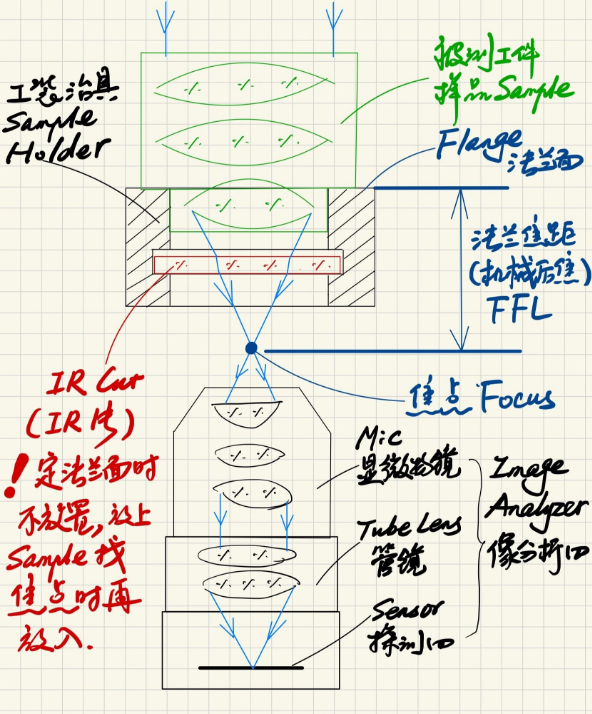 工装治具
Sample
Holder
被测工件
样品Sample
Flange
法兰面
法兰焦距
(机械后焦)
FFL
焦点 Focus
IR Cut
(IR片)
! 定法兰面时
不放置,放上
Sample找
焦点时再
放入.
Mic
显微物镜
Tube Lens
管镜
Sensor
探测口
Image
Analyzer
像分析口